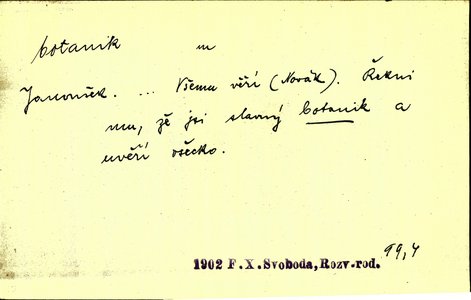 botanik m
Janoušek. ... Všemu věří (Novák). Řekni
mu, žě jsi slavný botanik a
uvěří všecko.
1902 F.X.Svoboda, Rozv.rod. 99,4